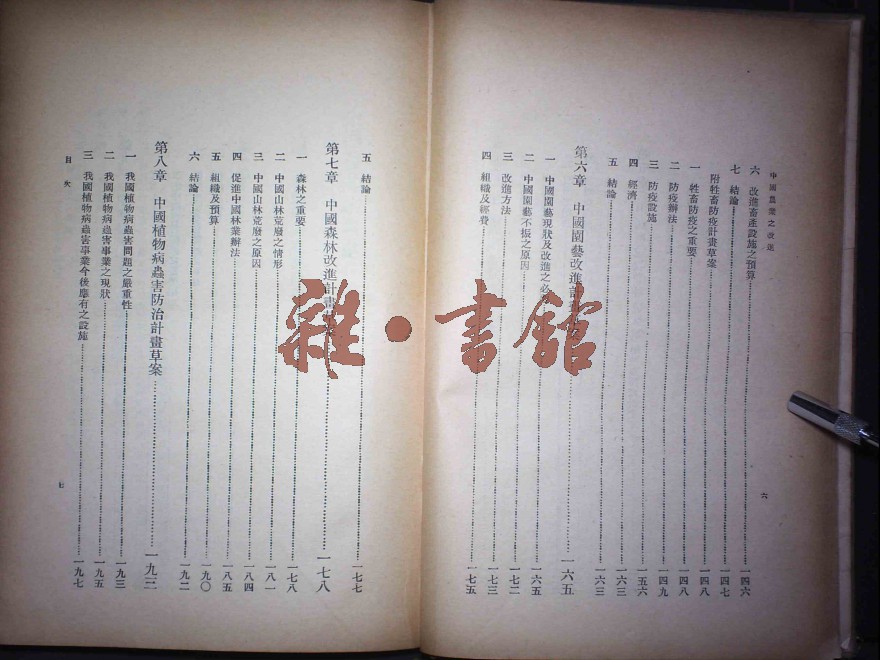 中國農業之改進
六 改進畜產設施之預算 一四六
七 結論 一四七
附牲畜防疫計畫草案 一四八
一 牲畜防疫之重要 一四八
二 防疫辦法 一四九
三 防疫設施 一五六
四 經濟 一六三
五 結論 一六三
第六章 中國園藝改進計 一六五
一 中國園藝現狀及改進之必 一六五
二 中國園藝不振之原因 一七二
三 改進方法 一七三
四 組織及經費 一七五
六
五 結論 一七七
第七章 中國森林改進計畫 一七八
一 森林之重要 一七八
二 中國山林荒廢之情形 一八一
三 中國山林荒廢之原因 一八四
四 促進中國林業辦法 一八五
五 組織及預算 一九〇
六 結論 一九二
第八章 中國植物病蟲害防治計畫草案 一九三
一 我國植物病蟲害問題之嚴重性 一九三
二 我國植物病蟲害事業之現狀 一九五
三 我國植物病蟲害事業今後應有之設施 一九七
目次
七
雜·書館